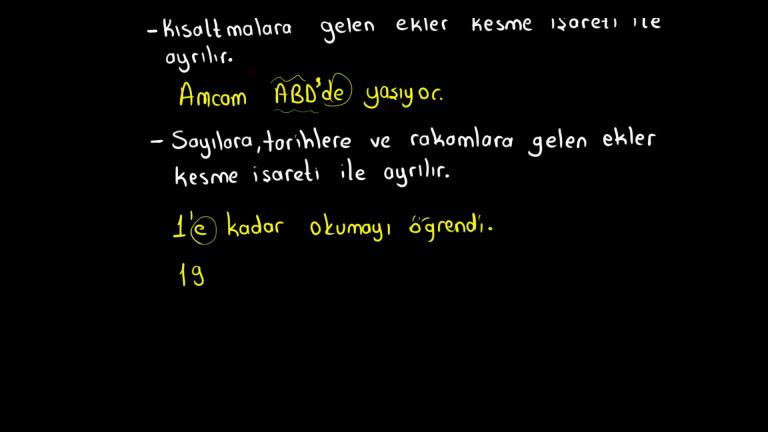 - Kısaltmalara gelen ekler kesme işareti ile
ayrılır.
Amcam ABD'de yaşıyor.
- Sayılara, tarihlere ve rakamlara gelen ekler
kesme işareti ile ayrılır.
1'e kadar okumayı öğrendi.
19